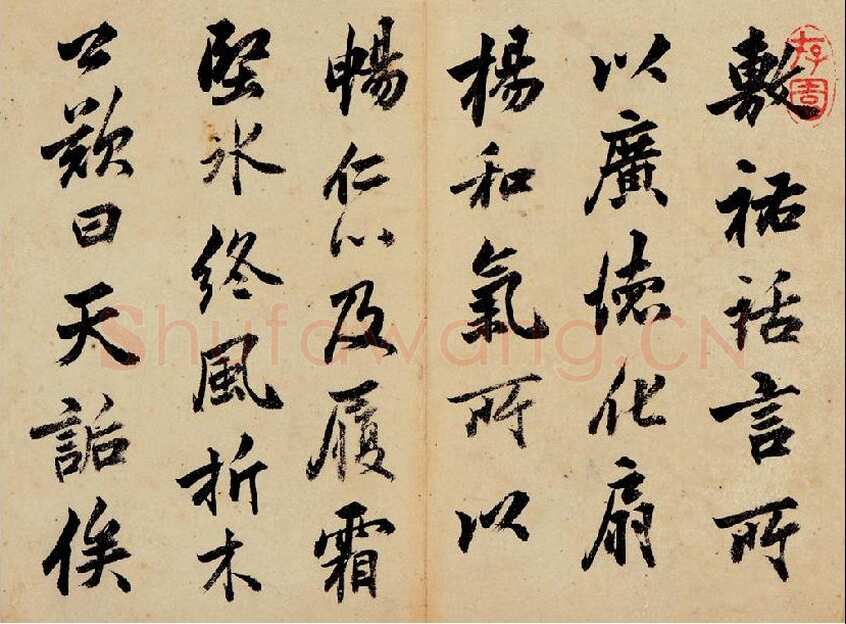 敷祐話言所
以廣德化扇
楊和氣所以
暢仁心及履霜
堅冰終風折木
公歎曰天誥俟
Shufawang.CN